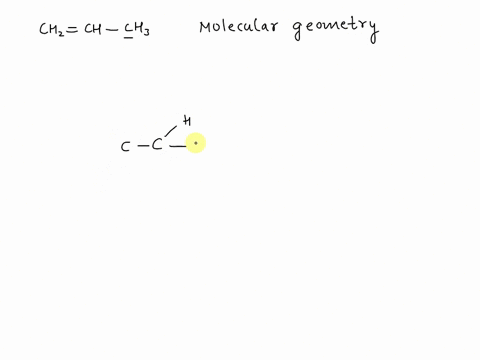 CH₂=CH-CH₃ Molecular geometry
H
C-C-